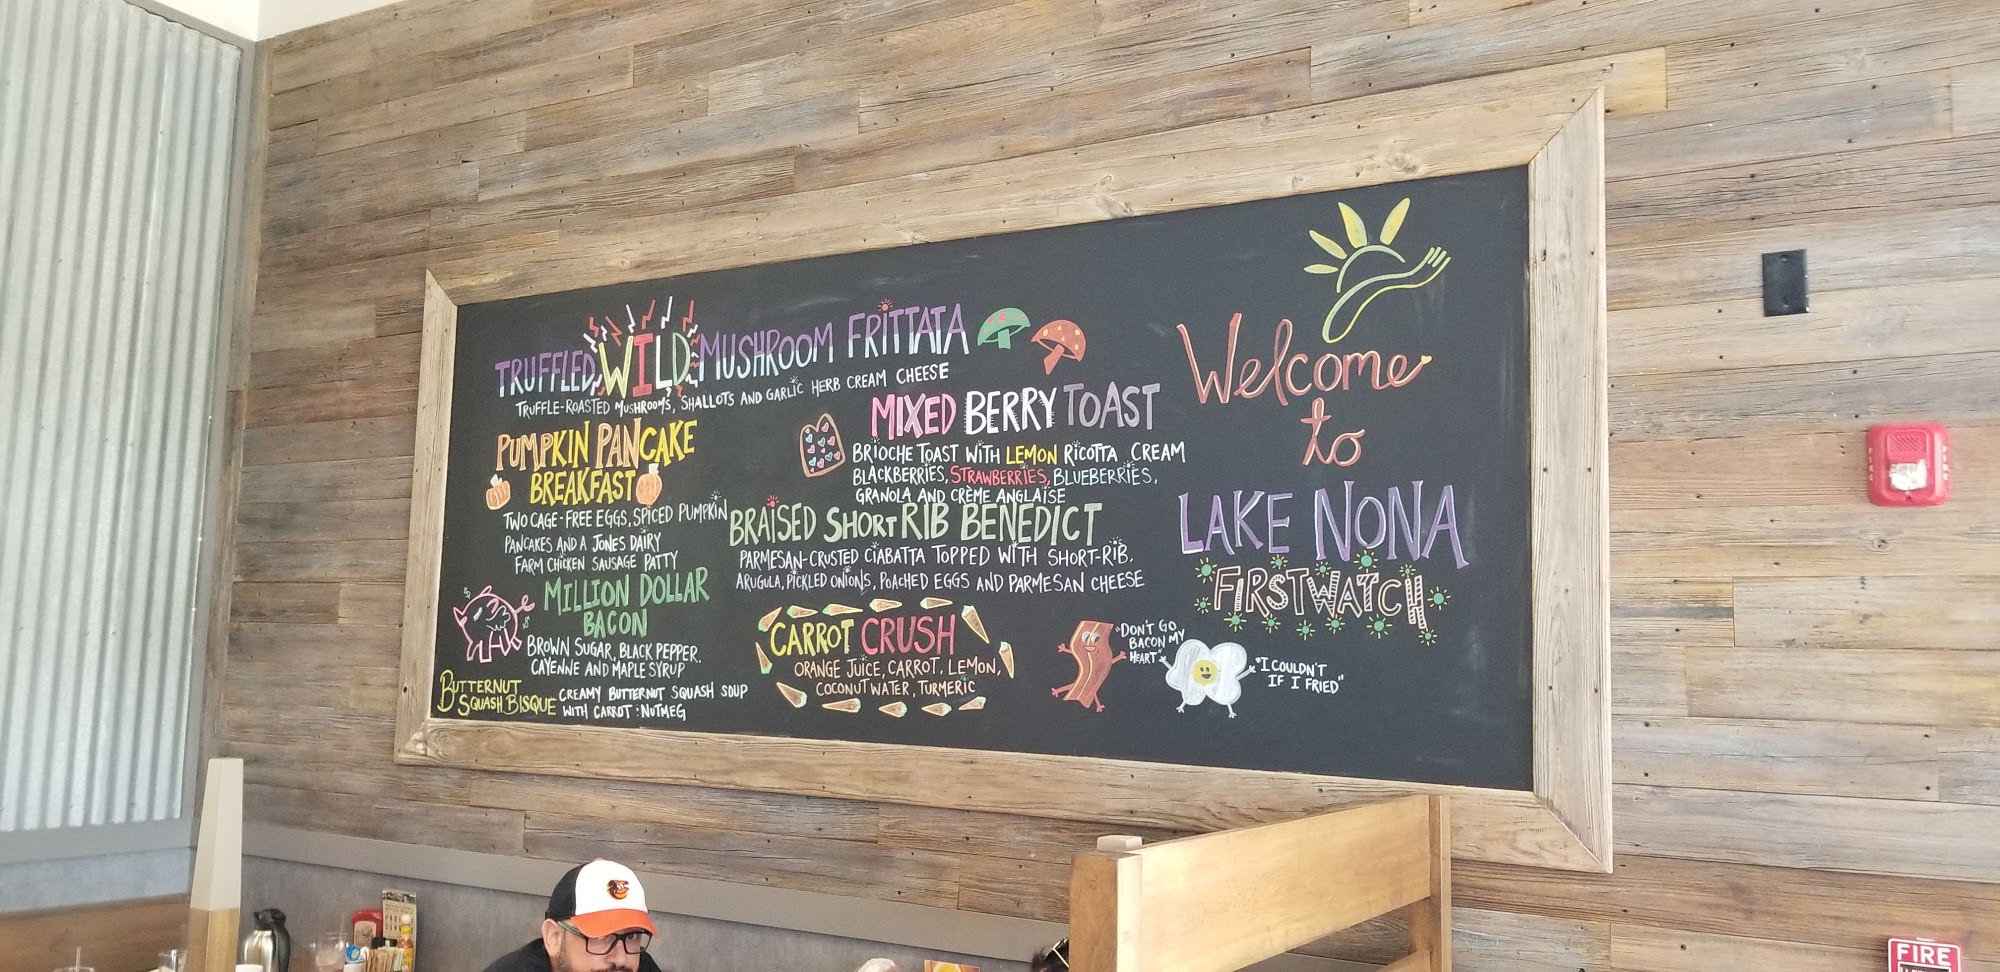 TRUFFLED WILD MUSHROOM FRITTATA
TRUFFLE-ROASTED MUSHROOMS, SHALLOTS AND GARLIC HERB CREAM CHEESE
PUMPKIN PANCAKE
BREAKFAST
TWO CAGE-FREE EGGS, SPICED PUMPKIN
PANCAKES AND A JONES DAIRY
FARM CHICKEN SAUSAGE PATTY
MILLION DOLLAR
BACON
BROWN SUGAR, BLACK PEPPER,
CAYENNE AND MAPLE SYRUP
BUTTERNUT
SQUASH BISQUE
CREAMY BUTTERNUT SQUASH SOUP
WITH CARROT : NUTMEG
MIXED BERRY TOAST
BRIOCHE TOAST WITH LEMON RICOTTA CREAM
BLACKBERRIES, STRAWBERRIES, BLUEBERRIES,
GRANOLA AND CRÈME ANGLAISE
BRAISED SHORT RIB BENEDICT
PARMESAN-CRUSTED CIABATTA TOPPED WITH SHORT-RIB,
ARUGULA, PICKLED ONIONS, POACHED EGGS AND PARMESAN CHEESE
CARROT CRUSH
ORANGE JUICE, CARROT, LEMON,
COCONUT WATER, TURMERIC
Welcome
to
LAKE NONA
FIRSTWATCH
"DON'T GO
BACON MY
HEART"
"I COULDN'T
IF I FRIED"
FIRE